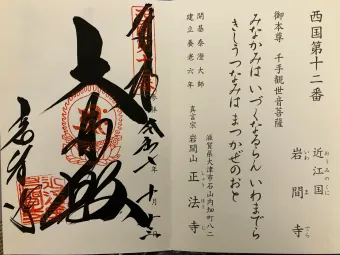 西国第十二番
近江国
おうみのくに
岩間寺
いわ ま でら
御本尊 千手観世音菩薩
みなかみは いづくなるらん いわまでら
きしうつなみは まつかぜのおと
開基泰澄大師
建立養老六年
滋賀県大津市石山内畑町八二
真言宗 岩間山 正法寺
しょう ほう じ
奉拝
大悲殿